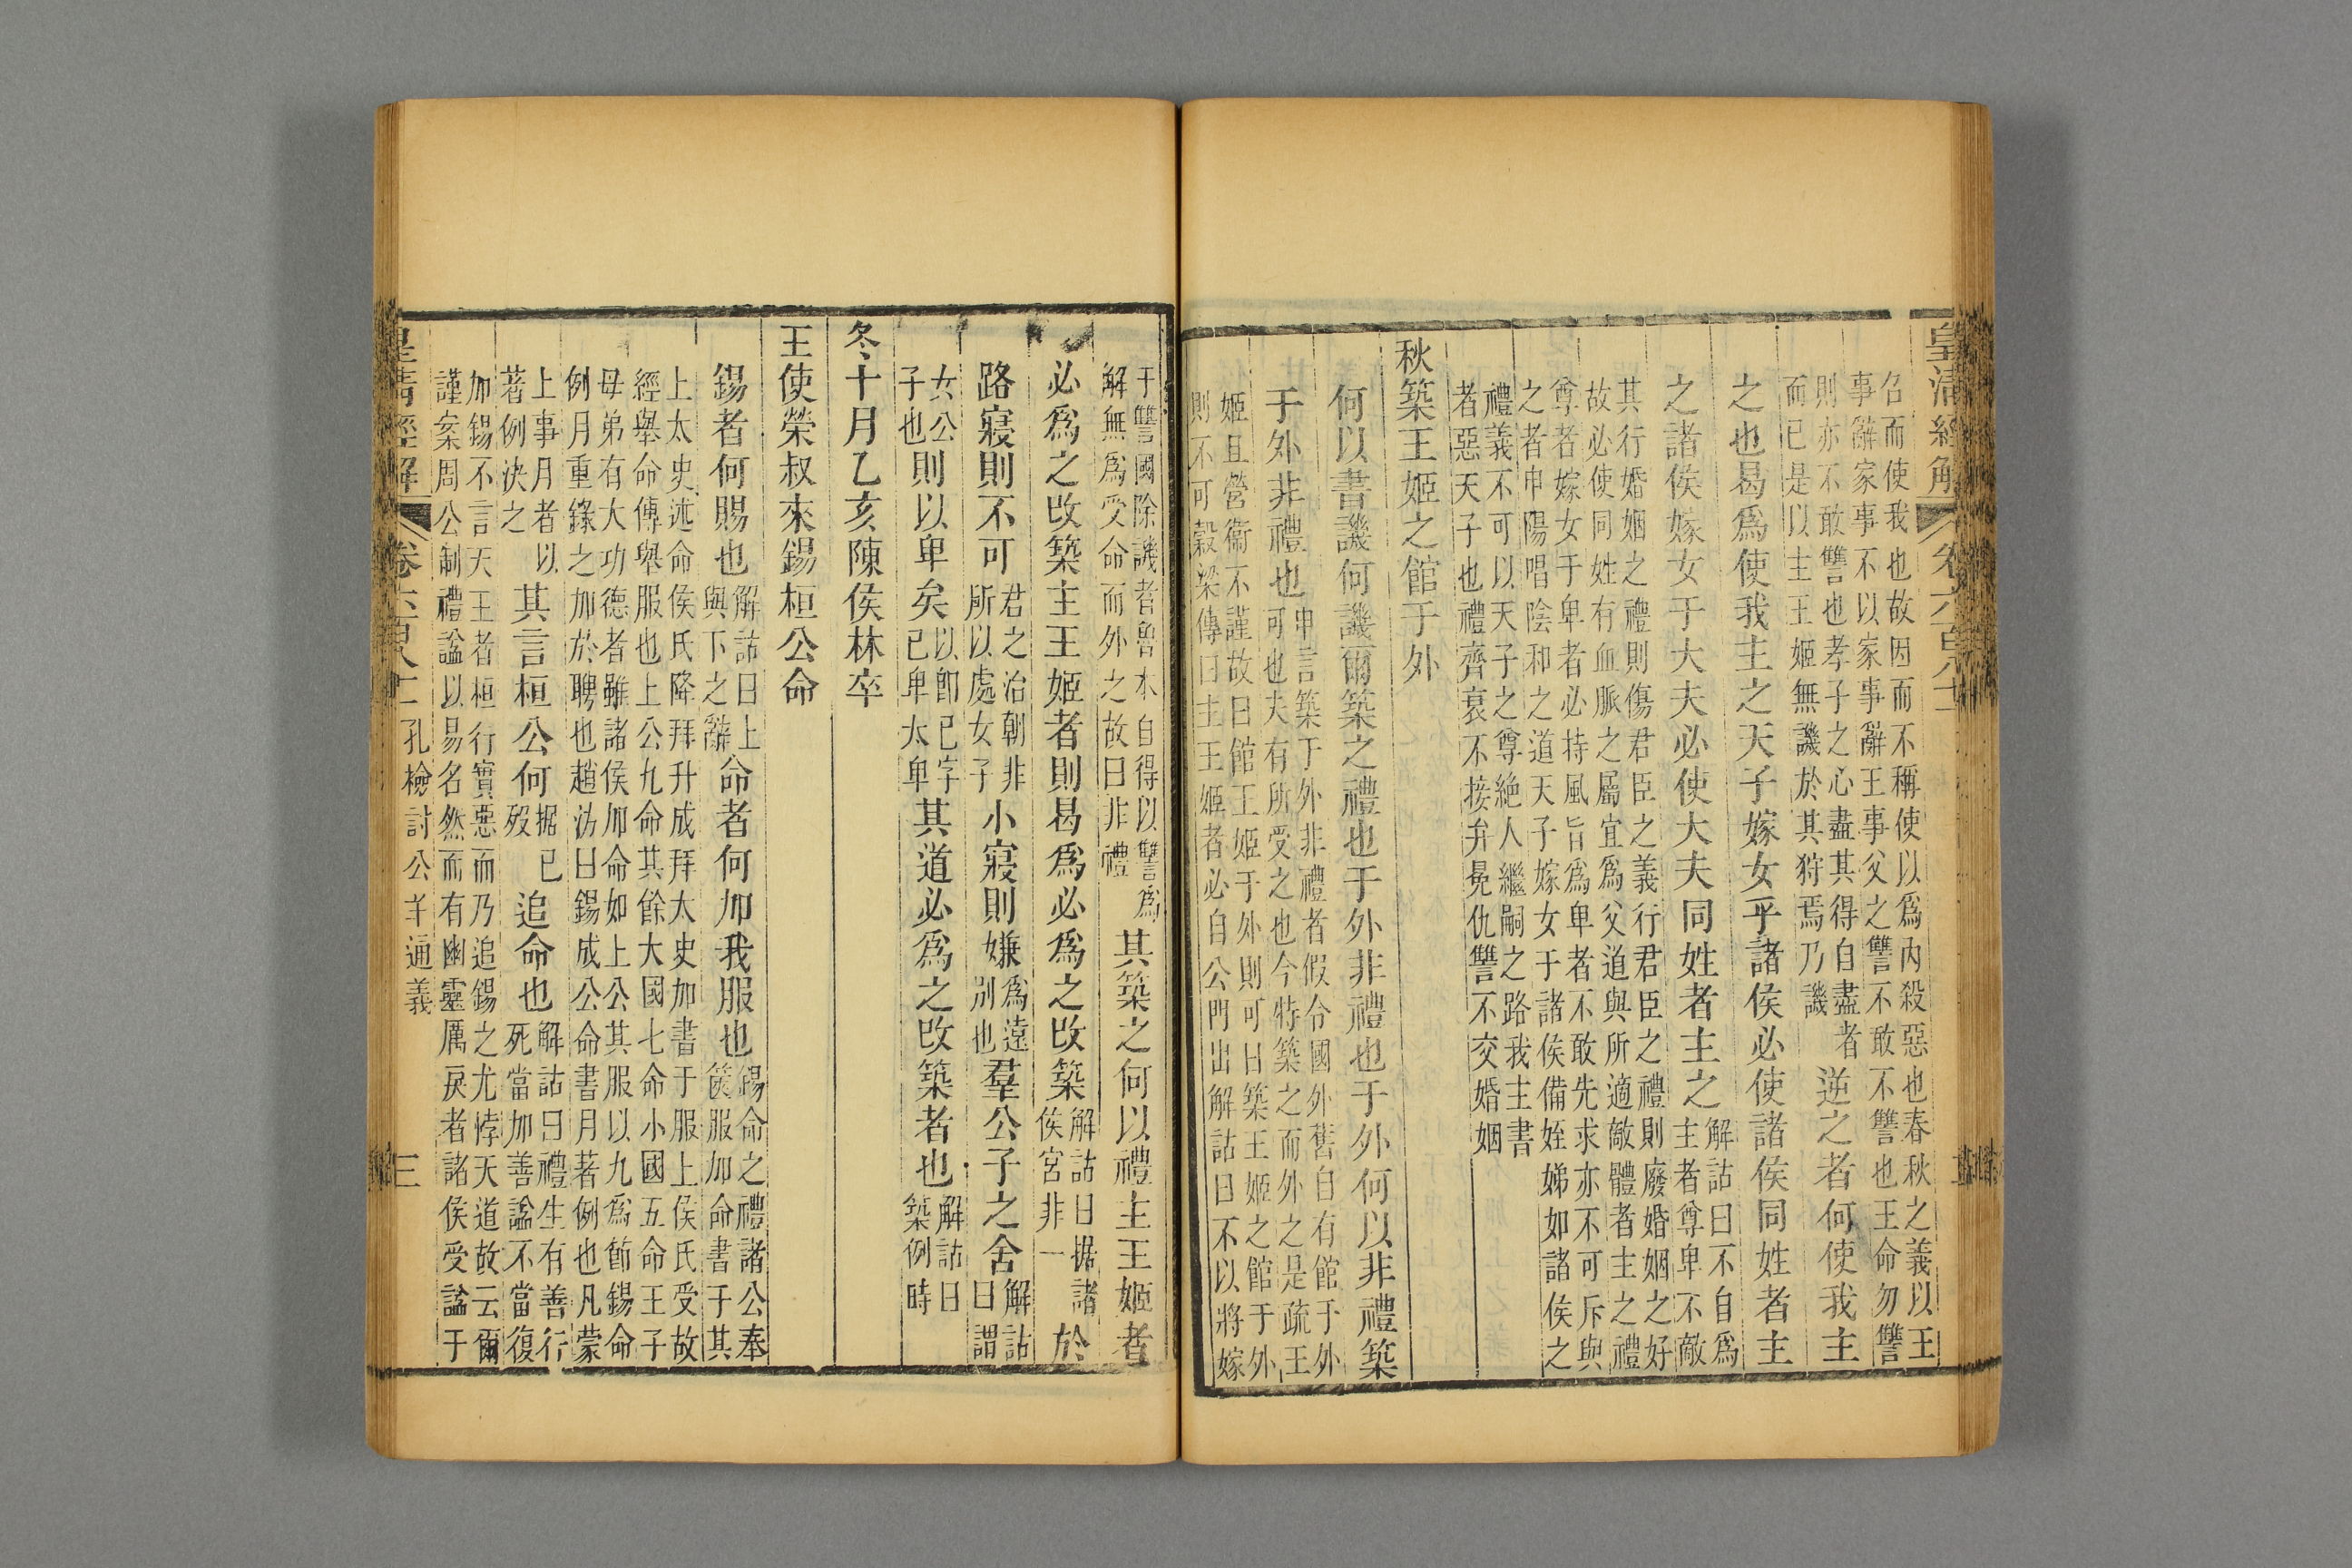 皇清經解
名而使我也故因而不稱使以爲內殺惡也春秋之義以王
事辭家事不以家事辭王事父之讐不敢不讐也王命勿讐
則亦不敢讐也孝子之心盡其得自盡者
而已是以主王姬無譏於其狩焉乃譏
逆之者何使我主
之也曷爲使我主之天子嫁女乎諸侯必使諸侯同姓者主
之諸侯嫁女于大夫必使大夫同姓者主之
解詁曰不自爲
主者尊卑不敵
其行婚姻之禮則傷君臣之義行君臣之禮則廢婚姻之好
故必使同姓有血脈之屬宜爲父道與所適敵體者主之禮
尊者嫁女于卑者必持風旨爲卑者不敢先求亦不可斥與
之者申陽唱陰和之道天子嫁女于諸侯備姪娣如諸侯之
禮義不可以天子之尊絶人繼嗣之路我主書
者惡天子也禮齊衰不接弁冕仇讐不交婚姻
秋築王姬之館于外
何以書譏何譏爾築之禮也于外非禮也于外何以非禮築
于外非禮也
申言築于外非禮者假令國外舊自有館于外
可也夫有所受之也今特築之而外之是疏王
姬且營衞不謹故曰館王姬于外則可曰築王姬之館于外
則不可穀梁傳曰主王姬者必自公門出解詁曰不以將嫁
于讐國除譏者魯本自得以讐爲
解無爲受命而外之故曰非禮
其築之何以禮主王姬者
必爲之改築主王姬者則曷爲必爲之改築
解詁曰据諸
侯宮非一
於
路寢則不可
君之治朝非
所以處女子
小寢則嫌
爲遠
別也
羣公子之舍
解詁
曰謂
女公
子也
則以卑矣
以卽已字
已卑太卑
其道必爲之改築者也
解詁曰
築例時
冬十月乙亥陳侯林卒
王使榮叔來錫桓公命
錫者何賜也
解詁曰上
與下之辭
命者何加我服也
錫命之禮諸公奉
篋服加命書于其
上太史述命侯氏降拜升成拜太史加書于服上侯氏受故
經舉命傳舉服也上公九命其餘大國七命小國五命王子
母弟有大功德者雖諸侯加命如上公其服以九爲節錫命
例月重錄之加於聘也趙汸曰錫成公命書月著例也凡蒙
上事月者以
著例決之
其言桓公何
据已
歿
追命也
解詁曰禮生有善行
死當加善諡不當復
加錫不言天王者桓行實惡而乃追錫之尤悖天道故云爾
謹案周公制禮諡以易名然而有幽靈厲戾者諸侯受諡于
皇清經解
孔檢討公羊通義
三